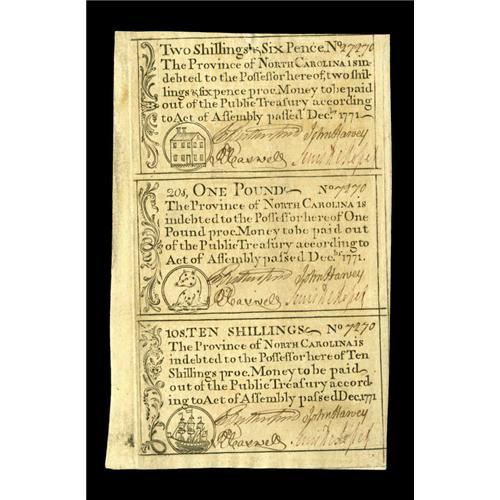 Two Shillings & Six Pence. No 27270
The Province of NORTH CAROLINA is in-
debted to the Possessor hereof, two shil-
lings & sixpence proc. Money to be paid
out of the Public Treasury according
to Act of Assembly passed Decr. 1771
Rutherfurd John Harvey
R Caswell Lewis De Rosset
20s, ONE POUND No 7270
The Province of NORTH CAROLINA is
indebted to the Possessor here of One
Pound proc. Money to be paid out
of the Public Treasury according to
Act of Assembly passed Decr. 1771.
Rutherfurd John Harvey
R Caswell Lewis De Rosset
10s, TEN SHILLINGS No 7270
The Province of NORTH CAROLINA is
indebted to the Possessor here of Ten
Shillings proc. Money to be paid
out of the Public Treasury accord-
ing to Act of Assembly passed Decr. 1771
Rutherfurd John Harvey
R Caswell Lewis De Rosset